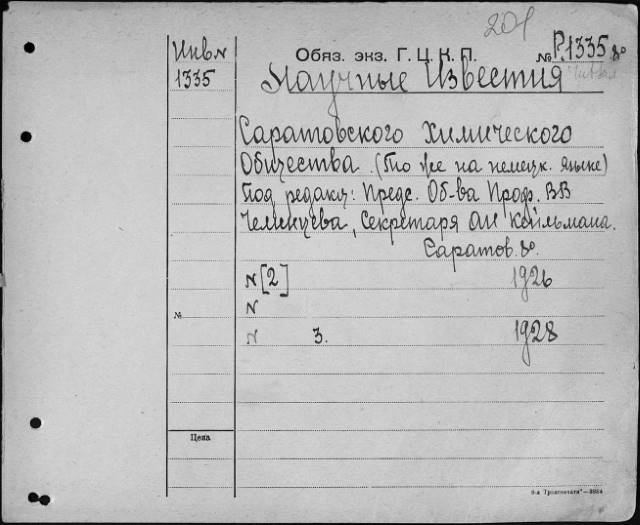 201
Инв. N
1335
Обяз. экз. Г. Ц. К. П.
№ Р.1335 8°
Научные Известия
Саратовского Химического
Общества. (То же на немецк. языке)
Под редакц: Предс. Об-ва Проф. В В
Челинцева, Секретаря АИ Койльмана.
Саратов. 8°.
N [2] 1926
N
№
N 3. 1928
Цена